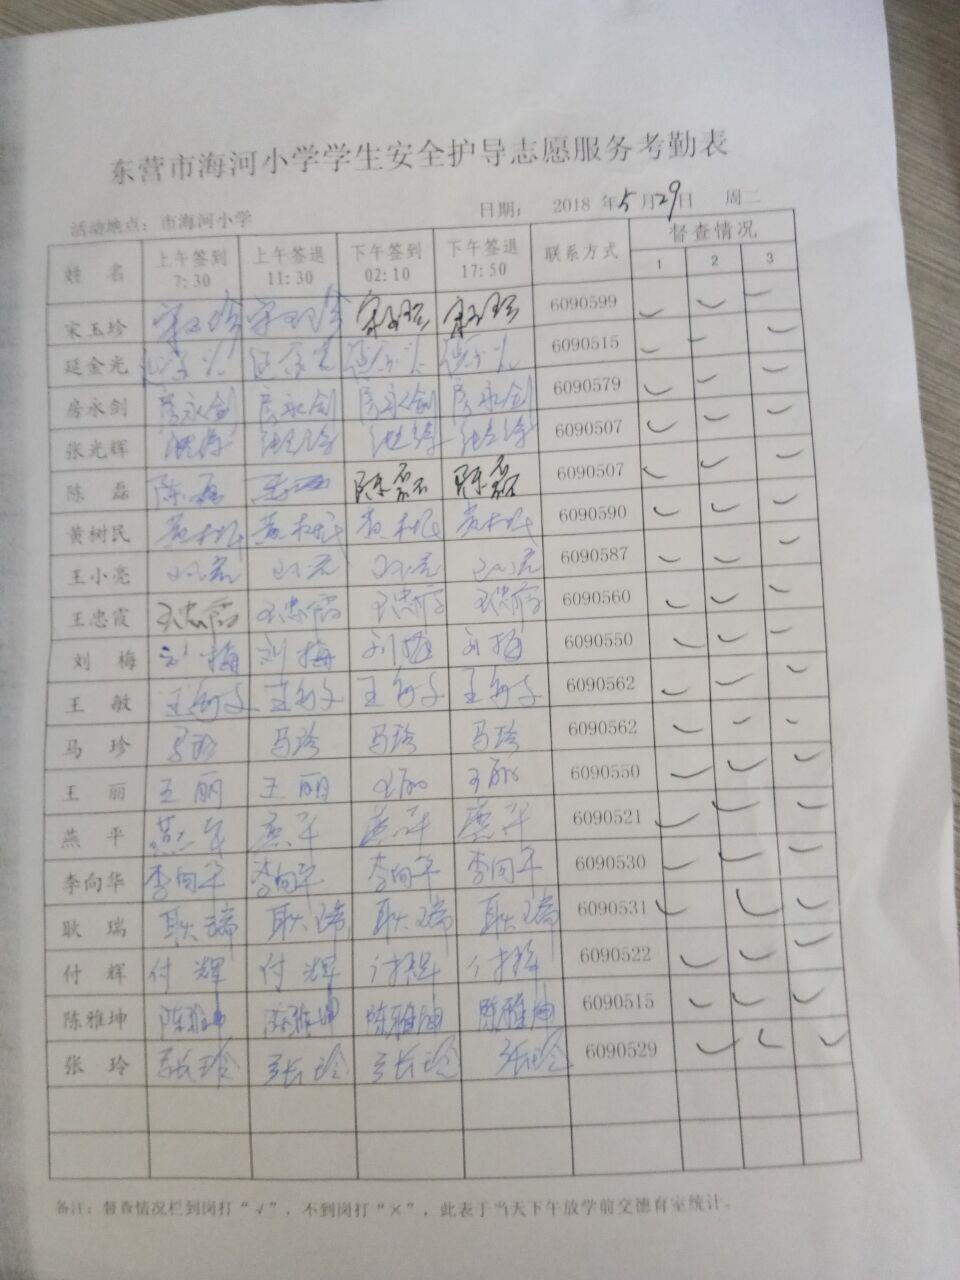 东营市海河小学学生安全护导志愿服务考勤表
活动地点：市海河小学 日期： 2018 年 5 月 29 日 周二
姓 名 上午签到 7:30 上午签退 11:30 下午签到 02:10 下午签退 17:50 联系方式 督查情况
1 2 3
宋玉珍 6090599
延金光 6090515
房永剑 房永剑 房永剑 房永剑 房永剑 6090579
张光辉 6090507
陈 磊 陈磊 陈磊 陈磊 6090507
黄树民 黄树民 黄树民 黄树民 黄树民 6090590
王小亮 6090587
王忠霞 王忠霞 王忠霞 王忠霞 王忠霞 6090560
刘 梅 刘梅 刘梅 刘梅 刘梅 6090550
王 敏 王敏 王敏 王敏 王敏 6090562
马 珍 马珍 马珍 马珍 马珍 6090562
王 丽 王丽 王丽 王丽 王丽 6090550
燕 平 燕平 燕平 燕平 燕平 6090521
李向华 李向华 李向华 李向华 李向华 6090530
耿 瑞 耿瑞 耿瑞 耿瑞 耿瑞 6090531
付 辉 付辉 付辉 付辉 付辉 6090522
陈雅坤 陈雅坤 陈雅坤 陈雅坤 陈雅坤 6090515
张 玲 张玲 张玲 张玲 张玲 6090529
备注：督查情况栏到岗打“√”，不到岗打“×”，此表于当天下午放学前交德育室统计。